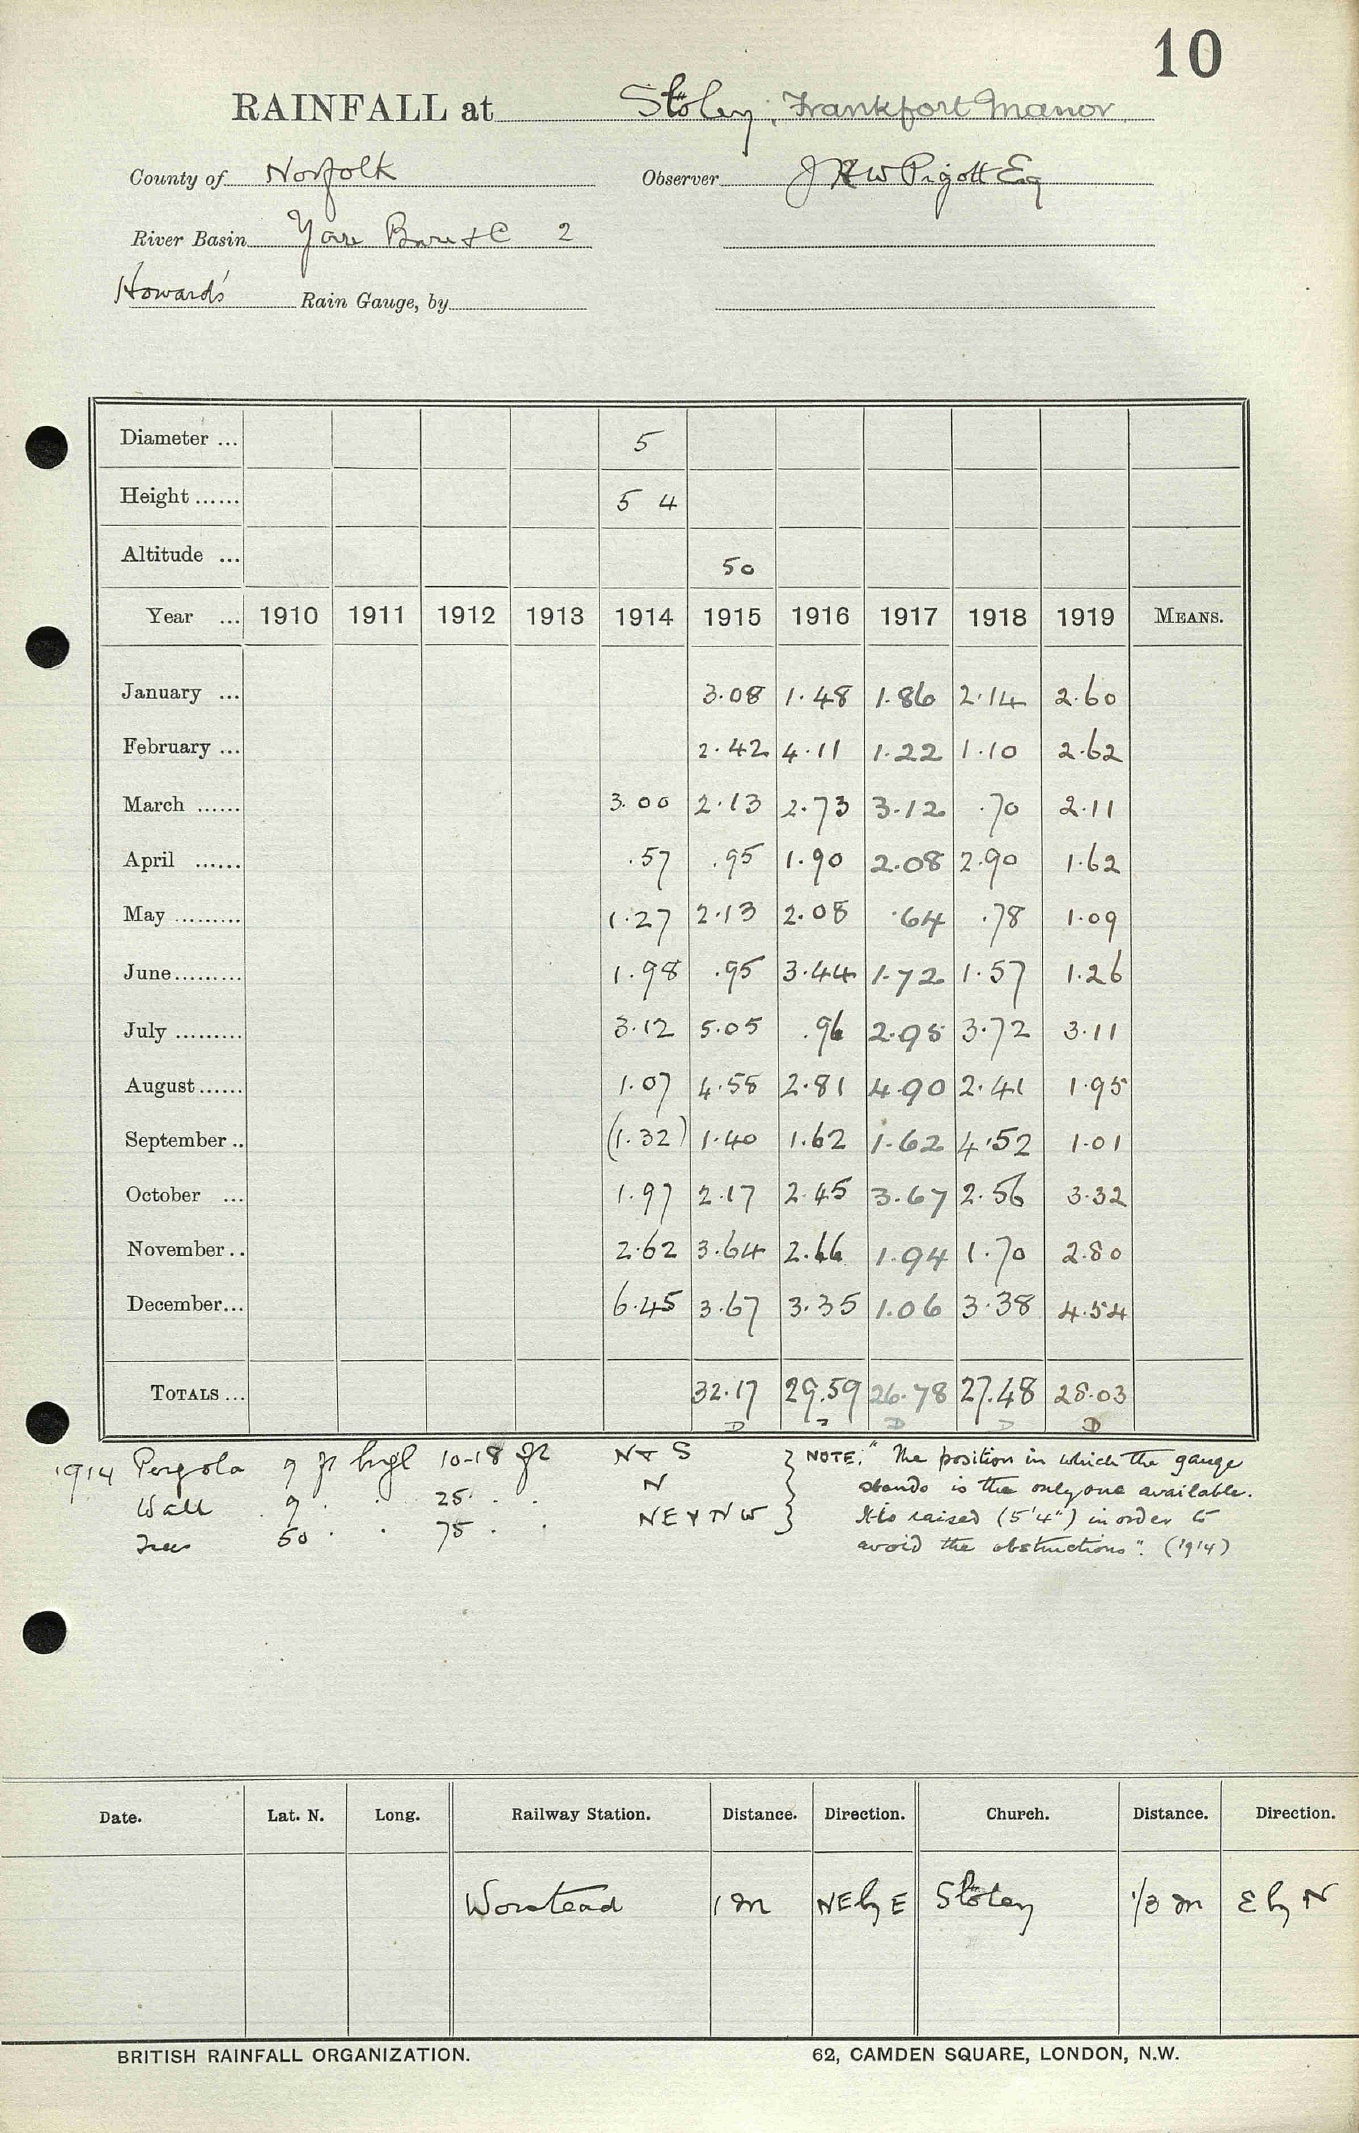 10
RAINFALL at Sloley, Frankfort Manor
County of Norfolk Observer J H W Pigott Esq
River Basin Yare Bure &c 2
Howard's Rain Gauge, by
Diameter ... 5
Height ...... 5 4
Altitude ... 50
Year ... 1910 1911 1912 1913 1914 1915 1916 1917 1918 1919 MEANS.
January ... 3.08 1.48 1.86 2.14 2.60
February ... 2.42 4.11 1.22 1.10 2.62
March ...... 3.00 2.13 2.73 3.12 .70 2.11
April ...... .57 .95 1.90 2.08 2.90 1.62
May ......... 1.27 2.13 2.08 .64 .78 1.09
June......... 1.98 .95 3.44 1.72 1.57 1.26
July ......... 3.12 5.05 .96 2.95 3.72 3.11
August...... 1.07 4.58 2.81 4.90 2.41 1.95
September .. (1.32) 1.40 1.62 1.62 4.52 1.01
October ... 1.97 2.17 2.45 3.67 2.56 3.32
November .. 2.62 3.64 2.66 1.94 1.70 2.80
December... 6.45 3.67 3.35 1.06 3.38 4.54
TOTALS ... 32.17 29.59 26.78 27.48 28.03
D D D D D
1914 Pergola 9 ft high 10-18 ft N & S
Wall 9 . . 25 . . N
Trees 50 . . 75 . . NE & NW
NOTE: "The position in which the gauge
stands is the only one available.
It is raised (5'4") in order to
avoid the obstructions". (1914)
Date. Lat. N. Long. Railway Station. Distance. Direction. Church. Distance. Direction.
Worstead 1 m NE by E Sloley 1/3 m E by N
BRITISH RAINFALL ORGANIZATION. 62, CAMDEN SQUARE, LONDON, N.W.